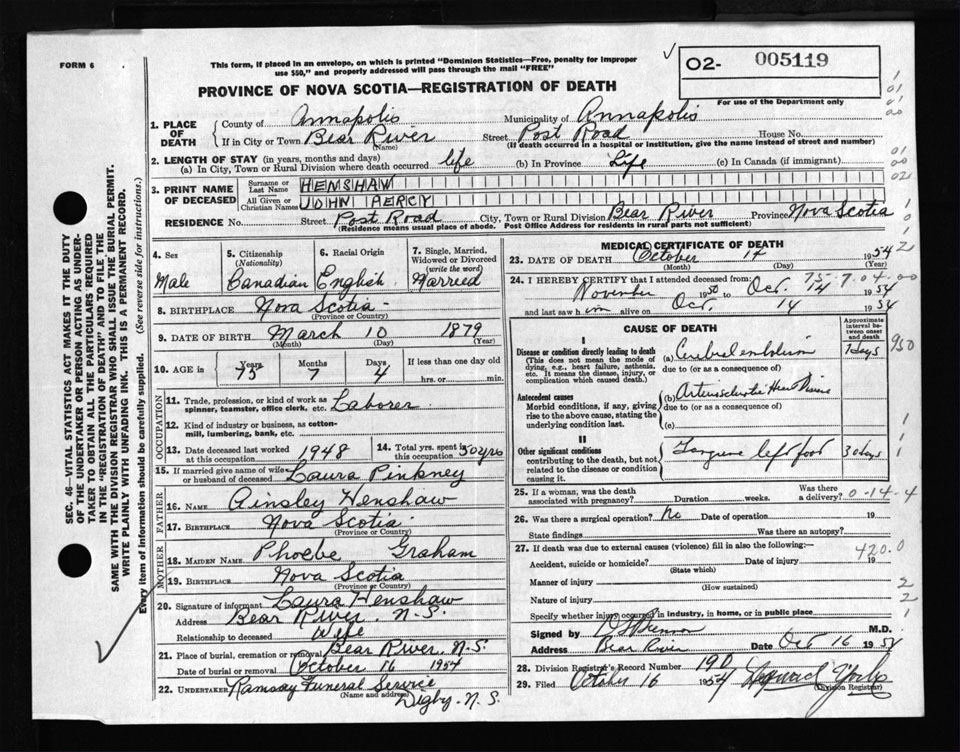 FORM 6
This form, if placed in an envelope, on which is printed "Dominion Statistics—Free, penalty for improper
use $50," and properly addressed will pass through the mail "FREE"
02- 005119
For use of the Department only
PROVINCE OF NOVA SCOTIA—REGISTRATION OF DEATH
1. PLACE OF DEATH
County of Annapolis Municipality of Annapolis
If in City or Town Bear River (Name) Street Post Road House No.
(If death occurred in a hospital or institution, give the name instead of street and number)
2. LENGTH OF STAY (in years, months and days)
(a) In City, Town or Rural Division where death occurred life (b) In Province Life (c) In Canada (if immigrant)
3. PRINT NAME OF DECEASED
Surname or Last Name HENSHAW
All Given or Christian Names JOHN PERCY
RESIDENCE No. Street Post Road City, Town or Rural Division Bear River Province Nova Scotia
(Residence means usual place of abode. Post Office Address for residents in rural parts not sufficient)
4. Sex Male
5. Citizenship (Nationality) Canadian
6. Racial Origin English
7. Single, Married, Widowed or Divorced (write the word) Married
8. BIRTHPLACE Nova Scotia
(Province or Country)
9. DATE OF BIRTH March 10 1879
(Month) (Day) (Year)
10. AGE in Years 75 Months 7 Days 4 If less than one day old hrs. or min.
OCCUPATION
11. Trade, profession, or kind of work as
spinner, teamster, office clerk, etc. Laborer
12. Kind of industry or business, as cotton-
mill, lumbering, bank, etc.
13. Date deceased last worked
at this occupation 1948
14. Total yrs. spent in
this occupation 50 yrs
15. If married give name of wife
or husband of deceased Laura Pinkney
FATHER
16. NAME Ainsley Henshaw
17. BIRTHPLACE Nova Scotia
(Province or Country)
MOTHER
18. MAIDEN NAME Phoebe Graham
19. BIRTHPLACE Nova Scotia
(Province or Country)
20. Signature of informant Laura Henshaw
Address Bear River, N.S.
Relationship to deceased Wife
21. Place of burial, cremation or removal Bear River, N.S.
Date of burial or removal October 16 1954
22. UNDERTAKER Ramsay Funeral Service
(Name and address) Digby. N.S.
MEDICAL CERTIFICATE OF DEATH
23. DATE OF DEATH October 14 1954
(Month) (Day) (Year)
24. I HEREBY CERTIFY that I attended deceased from:
November 1950 to Oct. 14 1954
and last saw him alive on Oct. 14 1954
75-7-04-00
CAUSE OF DEATH
Approximate interval between onset and death
I
Disease or condition directly leading to death
(This does not mean the mode of
dying, e.g., heart failure, asthenia,
etc. It means the disease, injury, or
complication which caused death.)
(a) Cerebral embolism 7 days
due to (or as a consequence of)
950
Antecedent causes
Morbid conditions, if any, giving
rise to the above cause, stating the
underlying condition last.
(b) Arteriosclerotic Heart Disease
due to (or as a consequence of)
(c)
II
Other significant conditions
contributing to the death, but not
related to the disease or condition
causing it.
Gangrene left foot 30 days
25. If a woman, was the death
associated with pregnancy? Duration weeks. Was there a delivery?
0-14-4
26. Was there a surgical operation? No Date of operation 19
State findings Was there an autopsy?
27. If death was due to external causes (violence) fill in also the following:—
420.0
Accident, suicide or homicide? Date of injury 19
(State which)
Manner of injury
(How sustained)
Nature of injury
Specify whether injury occurred in industry, in home, or in public place
Signed by M.D.
Address Bear River Date Oct 16 1954
28. Division Registrar's Record Number 190
29. Filed October 16 1954
(Division Registrar)
SEC. 46—VITAL STATISTICS ACT MAKES IT THE DUTY
OF THE UNDERTAKER OR PERSON ACTING AS UNDER-
TAKER TO OBTAIN ALL THE PARTICULARS REQUIRED
IN THE "REGISTRATION OF DEATH" AND TO FILE THE
SAME WITH THE DIVISION REGISTRAR WHO SHALL ISSUE THE BURIAL PERMIT.
WRITE PLAINLY WITH UNFADING INK. THIS IS A PERMANENT RECORD.
Every item of information should be carefully supplied. (See reverse side for instructions.)